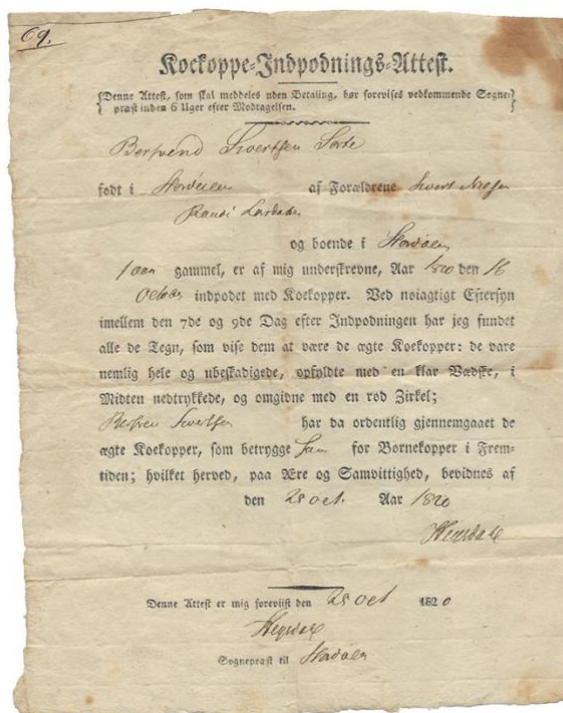 69.
Kockoppe-Indpodnings-Attest.
{Denne Attest, som skal meddeles uden Betaling, bør forevises vedkommende Sogne-}
præst inden 6 Uger efter Modtagelsen.
født i af Forældrene
og boende i
1 aar gammel, er af mig underskrevne, Aar 1820 den 16
October indpodet med Koekopper. Ved nøiagtigt Eftersyn
imellem den 7de og 9de Dag efter Indpodningen har jeg fundet
alle de Tegn, som vise dem at være de ægte Koekopper: de vare
nemlig hele og ubeskadigede, opfyldte med en klar Vædske, i
Midten nedtrykkede, og omgivne med en rød Zirkel;
har da ordentlig gjennemgaaet de
ægte Koekopper, som betrygge ham for Børnekopper i Frem-
tiden; hvilket herved, paa Ære og Samvittighed, bevidnes af
den 25 oct. Aar 1820
Denne Attest er mig foreviist den 25 oct 1820
Sognepræst til